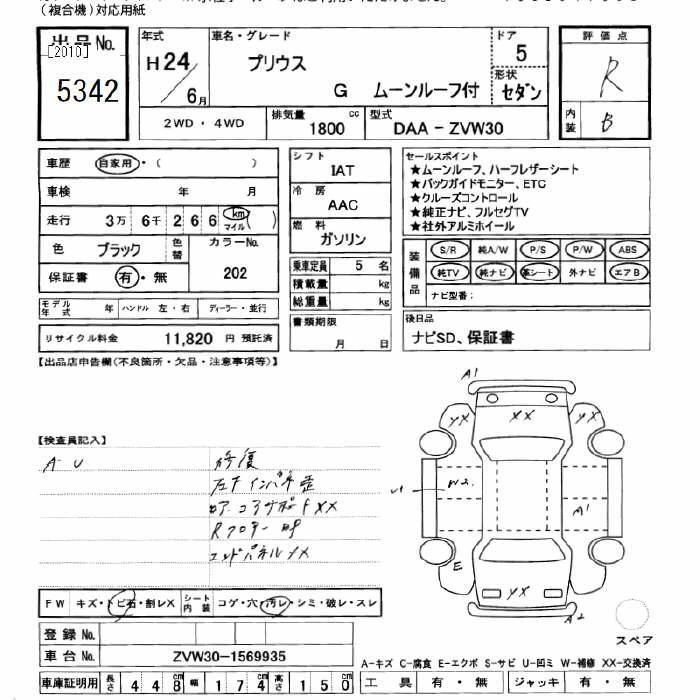 （複合機）対応用紙
出品No.
[2010]
5342
年式 H24/6月
車名・グレード プリウス
G ムーンルーフ付
ドア 5
形状 セダン
評価点 R
内装 B
2WD・4WD
排気量 1800 cc
型式 DAA-ZVW30
車歴 自家用・（ ）
車検 年 月
走行 3万 6千 2 6 6 km マイル ( )
色 ブラック
色替
カラーNo. 202
保証書 有・無
モデル年式 年 ハンドル 左・右 ディーラー・並行
リサイクル料金 11,820 円 預託済
シフト IAT
冷房 AAC
燃料 ガソリン
乗車定員 5 名
積載量 kg
総重量 kg
書類期限 月 日
セールスポイント
★ムーンルーフ、ハーフレザーシート
★バックガイドモニター、ETC
★クルーズコントロール
★純正ナビ、フルセグTV
★社外アルミホイール
装備品 S/R 純A/W P/S P/W ABS
純TV 純ナビ 革シート 外ナビ エアB
ナビ型番：
後日品
ナビSD、保証書
【出品店申告欄（不良箇所・欠品・注意事項等）】
【検査員記入】
A U
修復
コアサポートXX
エンドパネルXX
A1
XX XX XX
W2
A1
E
XX
A2
スペア
FW キズ・トビ石・割レX
シート内装 コゲ・穴・汚レ・シミ・破レ・スレ
登録No.
車台No. ZVW30-1569935
車庫証明用 長さ 448cm 幅 174cm 高さ 150cm
A-キズ C-腐食 E-エクボ S-サビ U-凹ミ W-補修 XX-交換済
工具 有・無 ジャッキ 有・無